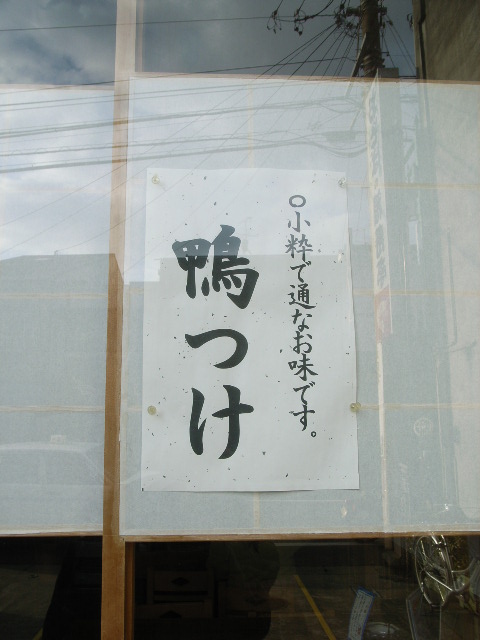 ○小粋で通なお味です。
鴨つけ